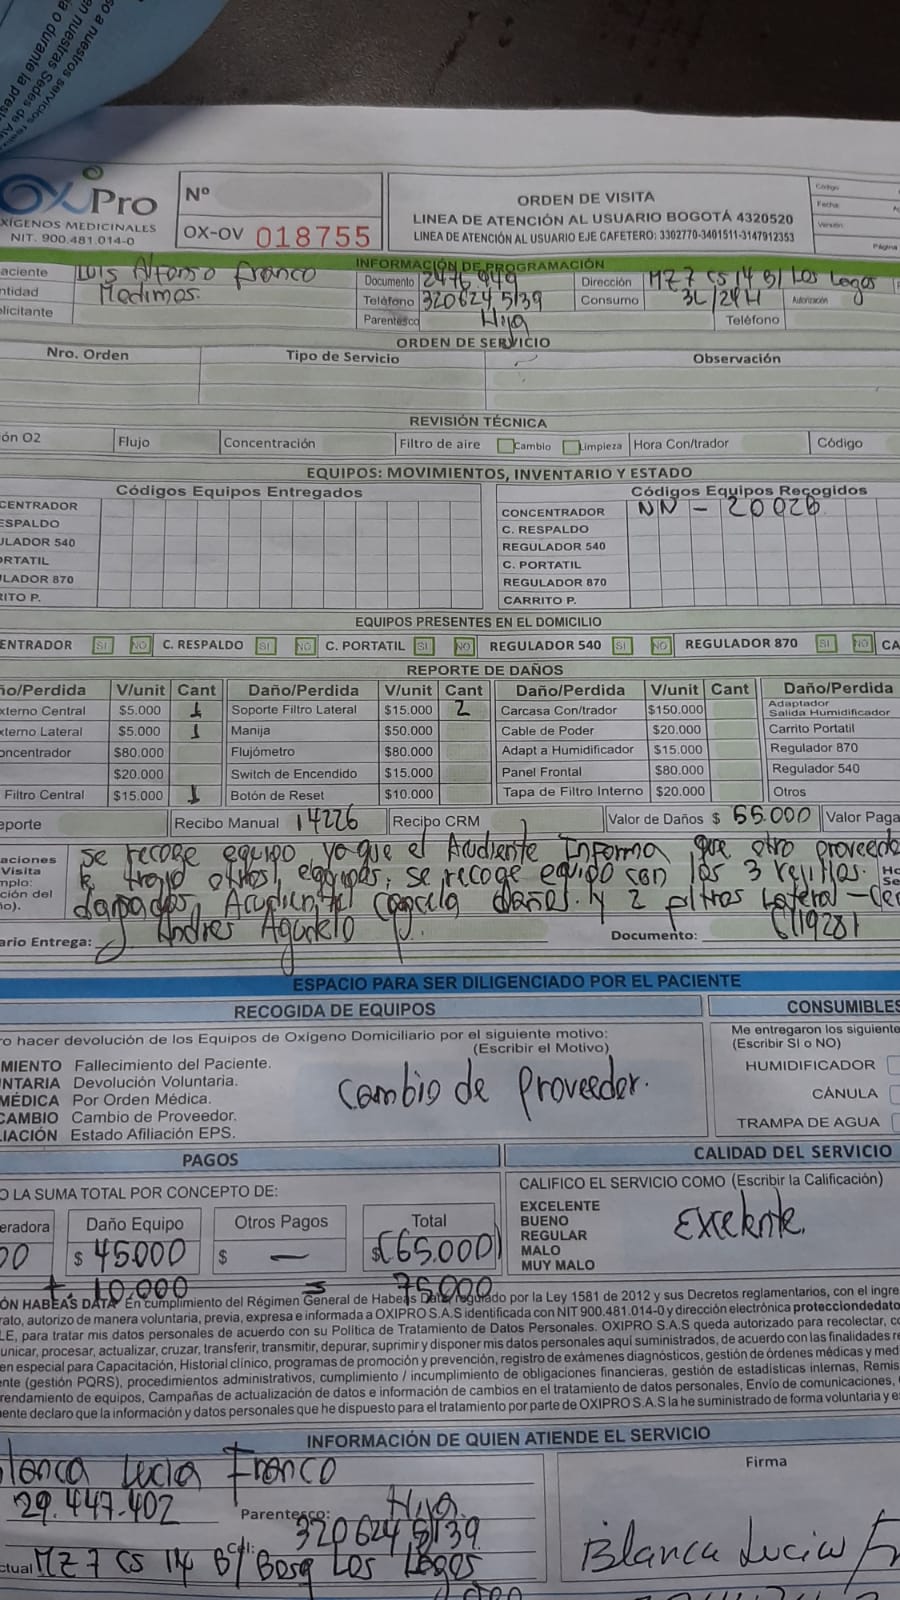 so a nuestros servicios
en nuestras Sedes de Ate
a o durante la pres
OXIPro
XÍGENOS MEDICINALES
NIT. 900.481.014-0
Nº
OX-OV 018755
ORDEN DE VISITA
LINEA DE ATENCIÓN AL USUARIO BOGOTÁ 4320520
LINEA DE ATENCIÓN AL USUARIO EJE CAFETERO: 3302770-3401511-3147912353
Código
Fecha
Versión
Página
INFORMACIÓN DE PROGRAMACIÓN
aciente Luis Alfonso Franco Documento 2476949 Dirección MZ 7 CS 14 B/ Los Lagos
ntidad Medimas. Teléfono 320 624 5139 Consumo 3L/24H Autorización
licitante Parentesco Hija Teléfono
ORDEN DE SERVICIO
Nro. Orden Tipo de Servicio Observación
REVISIÓN TÉCNICA
ón O2 Flujo Concentración Filtro de aire Cambio Limpieza Hora Con/trador Código
EQUIPOS: MOVIMIENTOS, INVENTARIO Y ESTADO
Códigos Equipos Entregados Códigos Equipos Recogidos
CENTRADOR CONCENTRADOR NN - 20026
ESPALDO C. RESPALDO
ULADOR 540 REGULADOR 540
ORTATIL C. PORTATIL
ULADOR 870 REGULADOR 870
RITO P. CARRITO P.
EQUIPOS PRESENTES EN EL DOMICILIO
ENTRADOR SI NO C. RESPALDO SI NO C. PORTATIL SI NO REGULADOR 540 SI NO REGULADOR 870 SI NO CA
REPORTE DE DAÑOS
ño/Perdida V/unit Cant Daño/Perdida V/unit Cant Daño/Perdida V/unit Cant Daño/Perdida
xterno Central $5.000 1 Soporte Filtro Lateral $15.000 2 Carcasa Con/trador $150.000 Adaptador Salida Humidificador
xterno Lateral $5.000 1 Manija $50.000 Cable de Poder $20.000 Carrito Portatil
oncentrador $80.000 Flujómetro $80.000 Adapt a Humidificador $15.000 Regulador 870
$20.000 Switch de Encendido $15.000 Panel Frontal $80.000 Regulador 540
Filtro Central $15.000 1 Botón de Reset $10.000 Tapa de Filtro Interno $20.000 Otros
eporte Recibo Manual 14226 Recibo CRM Valor de Daños $ 55.000 Valor Paga
aciones se recoge equipo ya que el Acudiente Informa que otro proveedo
Visita le trajo otros equipos, se recoge equipo con las 3 rejillas
mplo:
ción del dañadas, Acudiente cancela daños. y 2 filtros Lateral-
ño).
ario Entrega: Andres Agudelo Documento:
ESPACIO PARA SER DILIGENCIADO POR EL PACIENTE
RECOGIDA DE EQUIPOS CONSUMIBLES
ro hacer devolución de los Equipos de Oxígeno Domiciliario por el siguiente motivo: Me entregaron los siguiente
(Escribir el Motivo) (Escribir SI o NO)
MIENTO Fallecimiento del Paciente. HUMIDIFICADOR
NTARIA Devolución Voluntaria. Cambio de Proveedor.
MÉDICA Por Orden Médica. CÁNULA
CAMBIO Cambio de Proveedor.
LIACIÓN Estado Afiliación EPS. TRAMPA DE AGUA
PAGOS CALIDAD DEL SERVICIO
O LA SUMA TOTAL POR CONCEPTO DE: CALIFICO EL SERVICIO COMO (Escribir la Calificación)
eradora Daño Equipo Otros Pagos Total
00 $ 45000 $ — $ (65.000)
+ 10.000 = 75.000
EXCELENTE
BUENO
REGULAR
MALO
MUY MALO
Excelente.
ÓN HABEAS DATA En cumplimiento del Régimen General de Habeas Data, regulado por la Ley 1581 de 2012 y sus Decretos reglamentarios, con el ingre
rato, autorizo de manera voluntaria, previa, expresa e informada a OXIPRO S.A.S identificada con NIT 900.481.014-0 y dirección electrónica protecciondedato
LE, para tratar mis datos personales de acuerdo con su Política de Tratamiento de Datos Personales. OXIPRO S.A.S queda autorizado para recolectar, co
unicar, procesar, actualizar, cruzar, transferir, transmitir, depurar, suprimir y disponer mis datos personales aquí suministrados, de acuerdo con las finalidades re
en especial para Capacitación, Historial clínico, programas de promoción y prevención, registro de exámenes diagnósticos, gestión de órdenes médicas y med
ente (gestión PQRS), procedimientos administrativos, cumplimiento / incumplimiento de obligaciones financieras, gestión de estadísticas internas, Remis
rendamiento de equipos, Campañas de actualización de datos e información de cambios en el tratamiento de datos personales, Envío de comunicaciones,
ente declaro que la información y datos personales que he dispuesto para el tratamiento por parte de OXIPRO S.A.S la he suministrado de forma voluntaria y e
INFORMACIÓN DE QUIEN ATIENDE EL SERVICIO
Blanca Lucia Franco Firma
29.447.402 Parentesco: Hija
Cel: 320 624 5139
ctual MZ 7 CS 14 B/ Bosq Los Lagos Blanca Lucia F